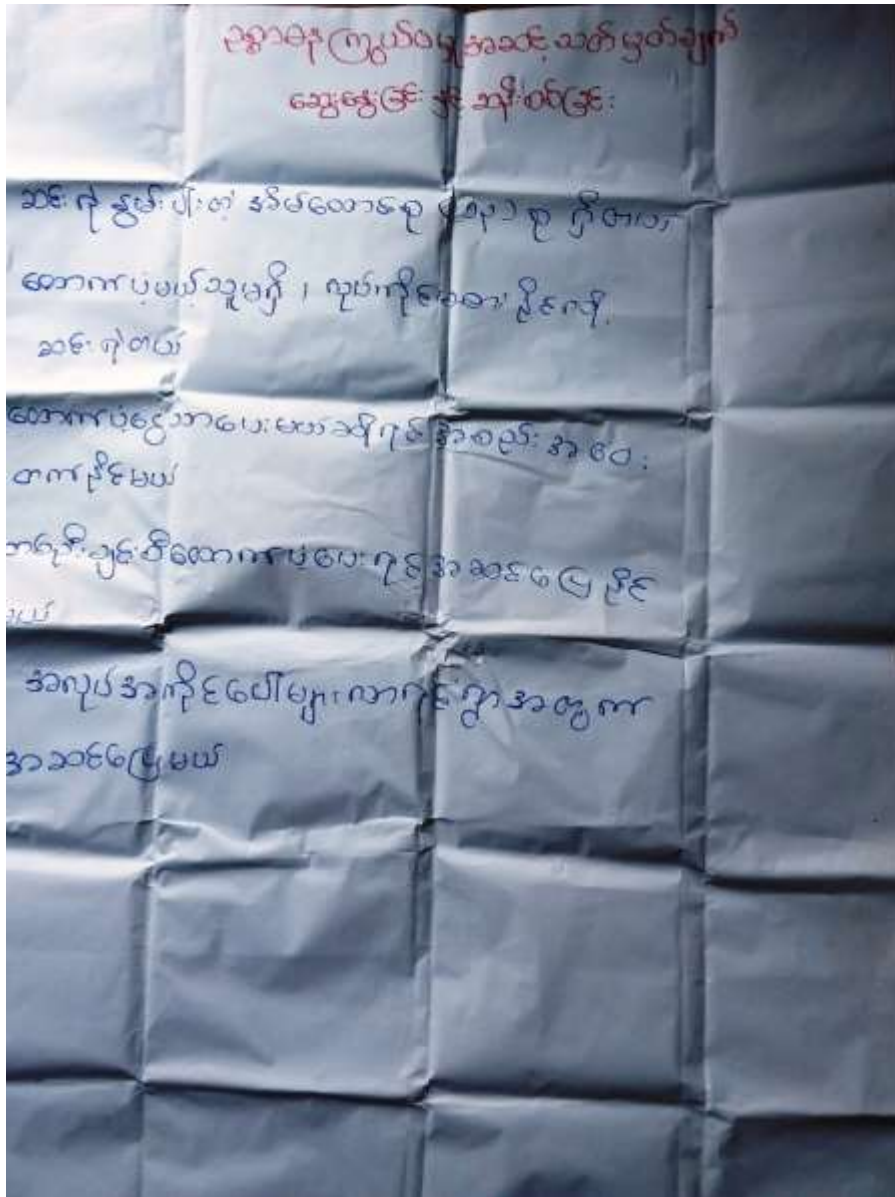 ဥစ္စာဓနကြွယ်ဝမှုအဆင့်သတ်မှတ်ချက်
ဆွေးနွေးခြင်း နှင့် ဆန်းစစ်ခြင်း
ဆင်းရဲနွမ်းပါးတဲ့ အိမ်ထောင်စု စု ရှိတယ်
ထောက်ပံ့မယ့်သူမရှိ ၊ လုပ်ကိုင်မစားနိုင်လို့
ဆင်းရဲတယ်
ထောက်ပံ့ငွေသာပေးမယ်ဆိုရင် အစည်းအဝေး
တက်နိုင်မယ်
တစ်ဦးချင်းစီထောက်ပံ့ပေးရင်အဆင်ပြေနိုင်
မယ်
အလုပ်အကိုင်ပေါများလာရင်ရွာအတွက်
အဆင်ပြေမယ်